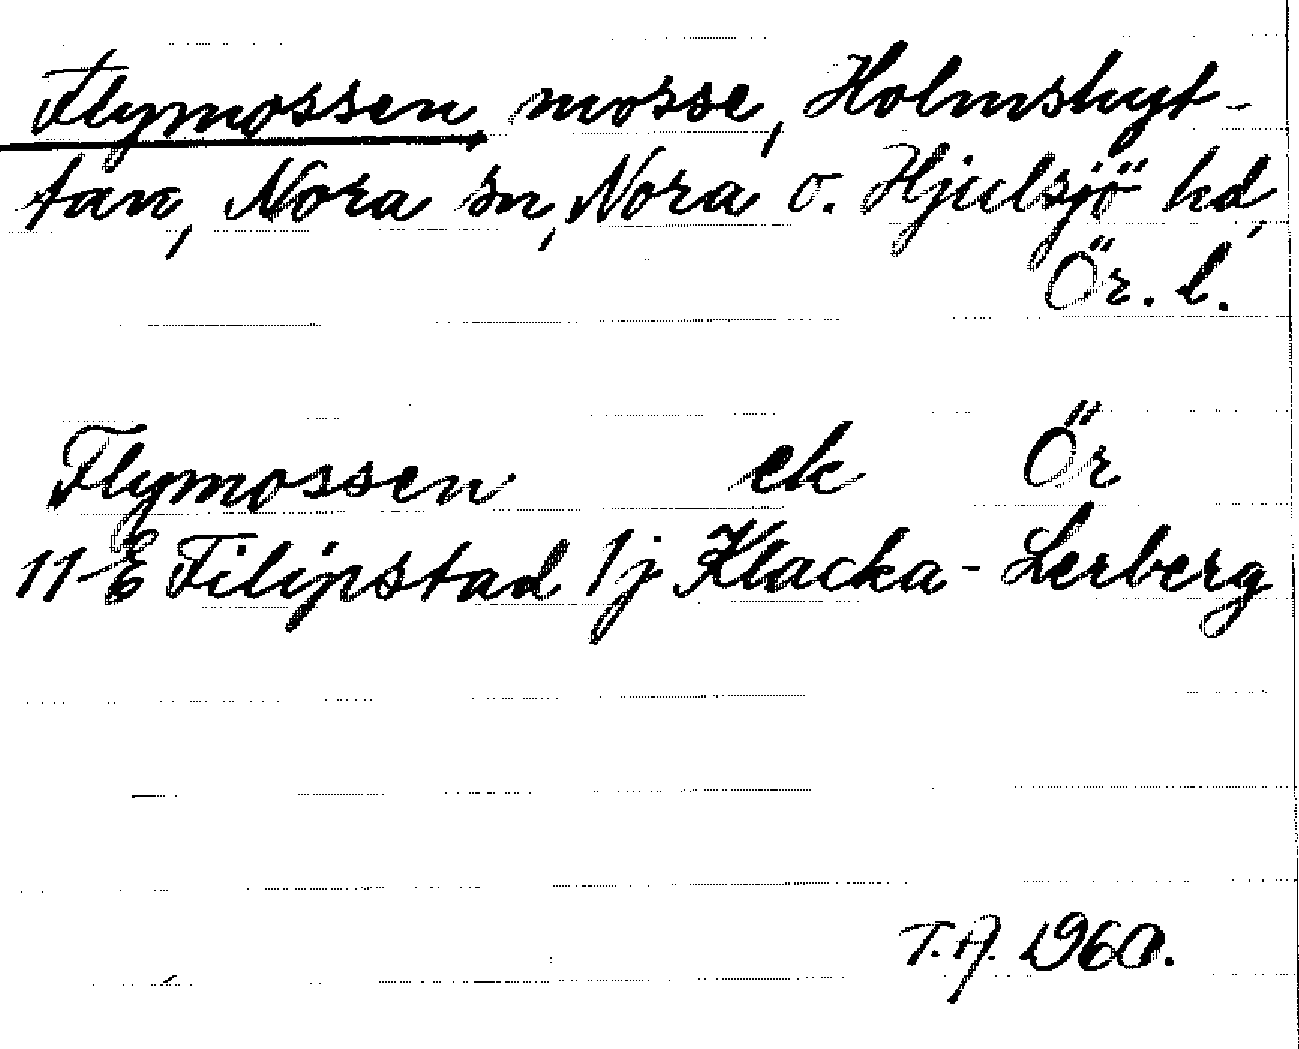 Flymossen, mosse, Holmshyt-
tan, Nora sn, Nora o. Hjulsjö hd,
Ör. l.
Flymossen ek Ör
11 E Filipstad 1j Klacka-Lerberg
T.A. 1960.